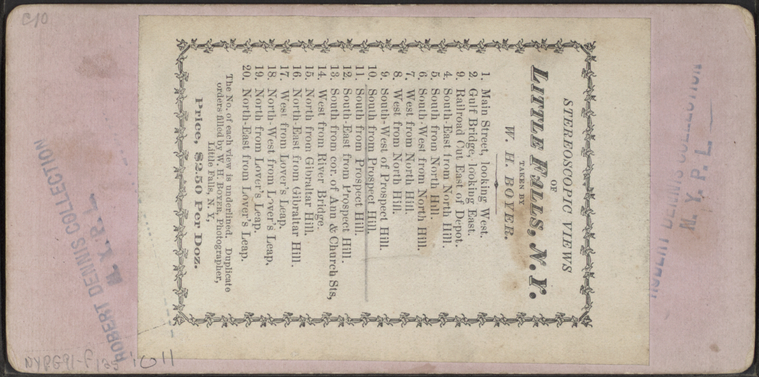 STEREOSCOPIC VIEWS
OF
LITTLE FALLS, N. Y.
TAKEN BY
W. H. BOYER.
1. Main Street, looking West.
2. Gulf Bridge, looking East.
9. Railroad Cut East of Depot.
4. South-East from North Hill.
5. South from North Hill.
6. South-West from North Hill.
7. West from North Hill.
8. West from North Hill.
9. South-West of Prospect Hill.
10. South from Prospect Hill.
11. South from Prospect Hill.
12. South-East from Prospect Hill.
13. South from cor. of Ann & Church Sts,
14. West from River Bridge.
15. North from Gibraltar Hill.
16. North-East from Gibraltar Hill.
17. West from Lover's Leap.
18. North-West from Lover's Leap.
19. North from Lover's Leap.
20. North-East from Lover's Leap.
The No. of each view is underlined. Duplicate
orders filled by W. H. BOYER, Photographer,
Little Falls, N. Y.
Price, $2.50 Per Doz.
ROBERT DENNIS COLLECTION
N. Y. P. L.
ROBERT DENNIS COLLECTION
N. Y. P. L.
C10